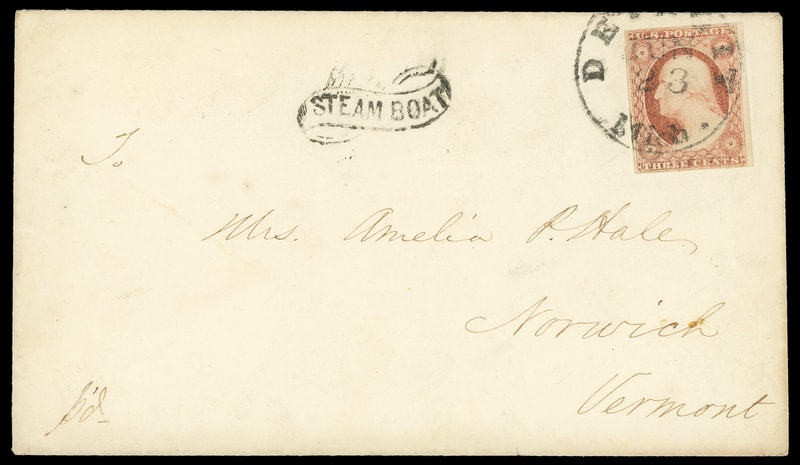 STEAM BOAT
U.S. POSTAGE
3
Mich.
THREE CENTS
To
Mrs. Amelia P. Hale,
Norwich
Vermont
p'd